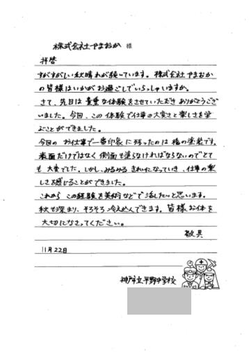 株式会社やまおか 様
拝啓
すがすがしい秋晴れが続いています。株式会社やまおか
の皆様はいかがお過ごしでいらっしゃいますか。
さて、先日は貴重な体験をさせていただきありがとうござ
いました。今回、この体験で仕事の大変さと楽しさを学
ぶことができました。
今回のお仕事で一番印象に残ったのは橋の塗装です。
表面だけではなく側面も塗らなければならないのでとて
も大変でした。しかし、みるみるきれいになっていき、仕事の楽
しさを感じることができました。
これから この経験を美術などで活したいと思います。
秋も深まり、そろそろ冷えこんできます。皆様お体を
大切になさってください。
敬具
11月22日
神戸市立平野中学校